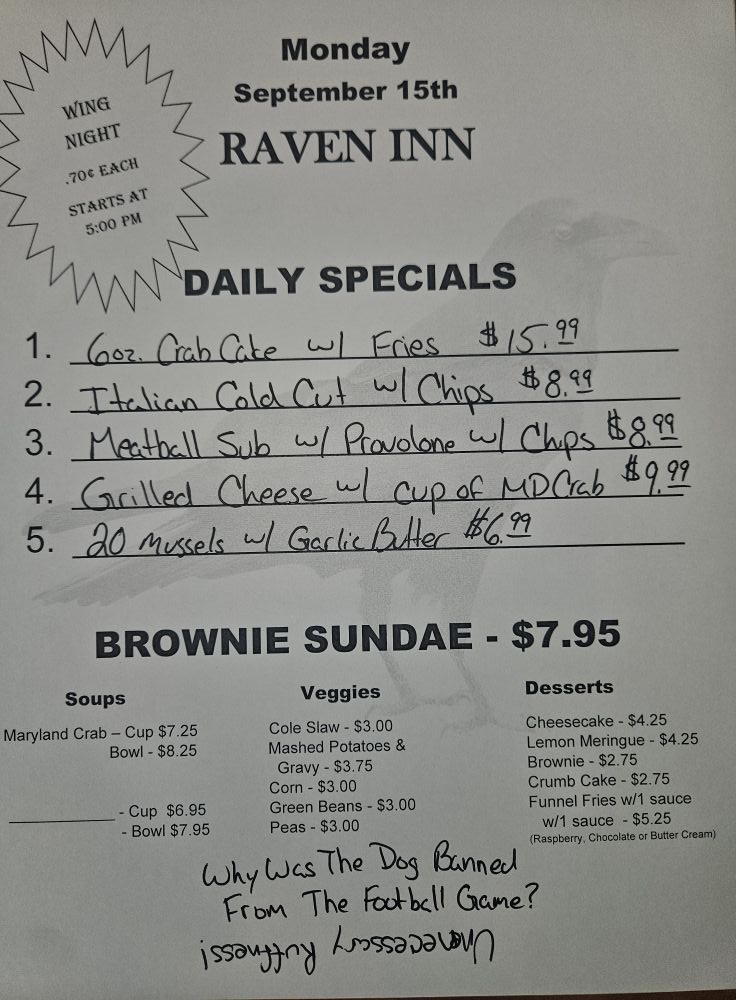 Monday
September 15th
RAVEN INN
WING
NIGHT
.70¢ EACH
STARTS AT
5:00 PM
DAILY SPECIALS
1. 6oz. Crab Cake w/ Fries $15.99
2. Italian Cold Cut w/ Chips $8.99
3. Meatball Sub w/ Provolone w/ Chips $8.99
4. Grilled Cheese w/ cup of MD Crab $9.99
5. 20 Mussels w/ Garlic Butter $6.99
BROWNIE SUNDAE - $7.95
Soups
Maryland Crab – Cup $7.25
Bowl - $8.25
- Cup $6.95
- Bowl $7.95
Veggies
Cole Slaw - $3.00
Mashed Potatoes &
Gravy - $3.75
Corn - $3.00
Green Beans - $3.00
Peas - $3.00
Desserts
Cheesecake - $4.25
Lemon Meringue - $4.25
Brownie - $2.75
Crumb Cake - $2.75
Funnel Fries w/1 sauce
w/1 sauce - $5.25
(Raspberry, Chocolate or Butter Cream)
Why Was The Dog Banned
From The Football Game?
Unnecessary Ruffness!